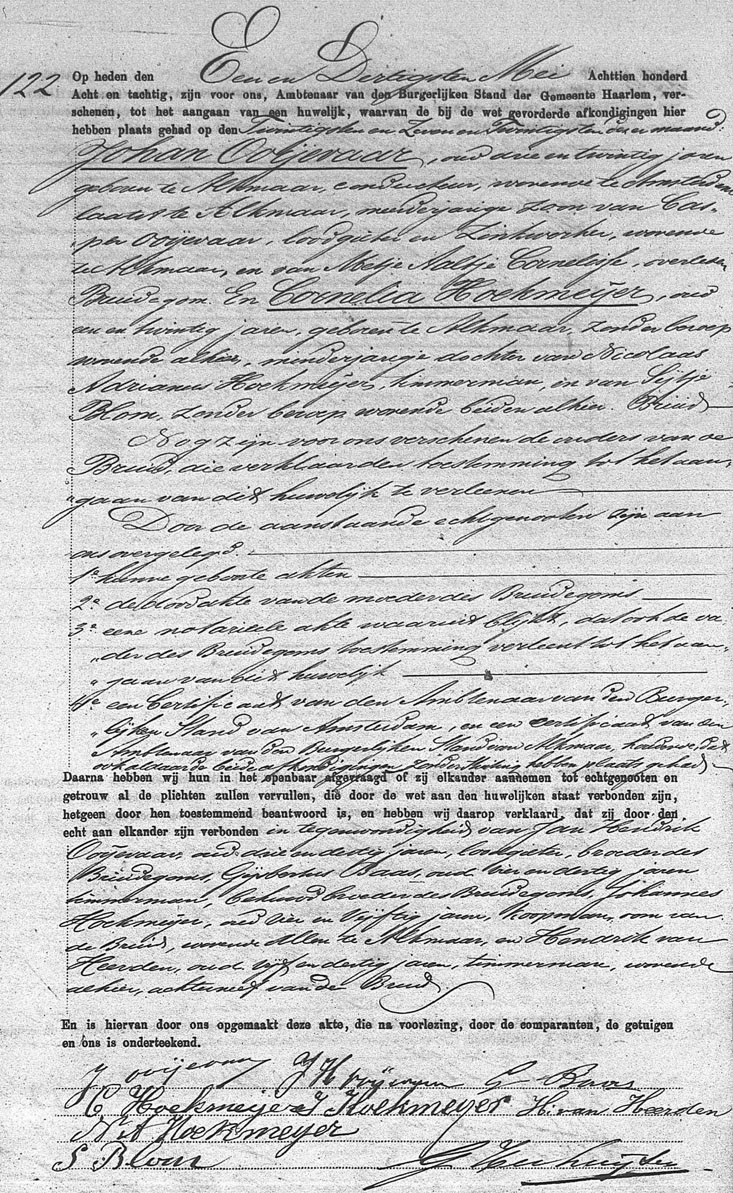 122
Op heden den Een en Dertigsten Mei Achttien honderd
Acht en tachtig, zijn voor ons, Ambtenaar van den Burgerlijken Stand der Gemeente Haarlem, ver-
schenen, tot het aangaan van een huwelijk, waarvan de bij de wet gevorderde afkondigingen hier
hebben plaats gehad op den Twintigsten en Zeven en Twintigsten dezer maand:
Johan Ooijevaar, oud drie en twintig jaren
geboren te Alkmaar, conducteur, wonende te Amsterdam
laatst te Alkmaar, minderjarige zoon van Cas-
"per Ooijevaar, loodgieter en Zinkwerker, wonende
te Alkmaar, en van Metje Aaltje Cornelisse, overleden
Bruidegom. En Cornelia Hoekmeijer, oud
en twintig jaren, geboren te Alkmaar, zonder beroep
wonende alhier, minderjarige dochter van Nicolaas
Adrianus Hoekmeijer, timmerman, en van Sijtje
Blom, zonder beroep wonende beiden alhier. Bruid
Nog zijn voor ons verschenen de ouders van de
Bruid, die verklaarden toestemming tot het aan-
"gaan van dit huwelijk te verleenen
Door de aanstaande echtgenooten zijn aan
ons overgelegd
1e hunne geboorte akten
2e de doodakte van de moeder des Bruidegoms
3e eene notarieele akte waaruit blijkt, dat ook de va-
"der des Bruidegoms toestemming verleent tot het aan-
"gaan van dit huwelijk
4e een Certificaat van den Ambtenaar van den Burger-
"lijken Stand van Amsterdam, en een certificaat van den
Ambtenaar van den Burgerlijken Stand van Alkmaar, houdende, dat
ook aldaar de beide afkondigingen zonder stuiting hebben plaats gehad
Daarna hebben wij hun in het openbaar afgevraagd of zij elkander aannemen tot echtgenooten en
getrouw al de plichten zullen vervullen, die door de wet aan den huwelijken staat verbonden zijn,
hetgeen door hen toestemmend beantwoord is, en hebben wij daarop verklaard, dat zij door den
echt aan elkander zijn verbonden in tegenwoordigheid van Jan Hendrik
Ooijevaar, oud drie en dertig jaren, loodgieter, broeder des
Bruidegoms, Gijsbertus Baas, oud vier en dertig jaren
timmerman, behuwdbroeder des Bruidegoms, Johannes
Hoekmeijer, oud vier en vijftig jaren, koopman, oom van
de Bruid, wonende allen te Alkmaar, en Hendrik van
Heerden, oud vijf en dertig jaren, timmerman, wonende
alhier, achterneef van de Bruid
En is hiervan door ons opgemaakt deze akte, die na voorlezing, door de comparanten, de getuigen
en ons is onderteekend.
J Ooijevaar J H Ooijevaar G Baas
C Hoekmeijer J Hoekmeyer H. van Heerden
N A Hoekmeyer
S Blom